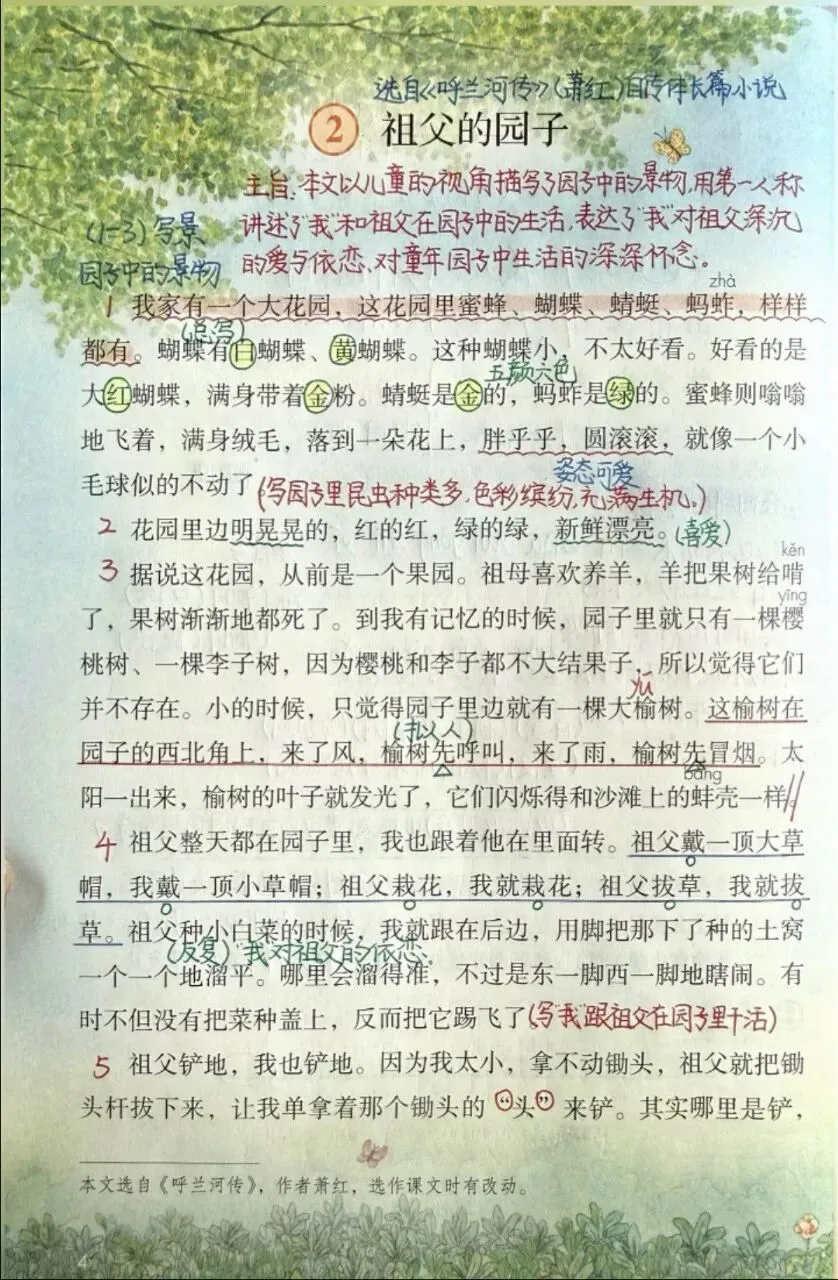 选自《呼兰河传》(萧红)自传体长篇小说
2 祖父的园子
主旨:本文以儿童的视角描写了园子中的景物,用第一人称
讲述了“我”和祖父在园子中的生活,表达了“我”对祖父深沉
的爱与依恋、对童年园子中生活的深深怀念。
(1-3)写景
园子中的景物
zhà
1 我家有一个大花园,这花园里蜜蜂、蝴蝶、蜻蜓、蚂蚱,样样
(总写)
都有。蝴蝶有白蝴蝶、黄蝴蝶。这种蝴蝶小,不太好看。好看的是
五颜六色
大红蝴蝶,满身带着金粉。蜻蜓是金的,蚂蚱是绿的。蜜蜂则嗡嗡
地飞着,满身绒毛,落到一朵花上,胖乎乎,圆滚滚,就像一个小
姿态可爱
毛球似的不动了(写园子里昆虫种类多,色彩缤纷,充满生机。)
2 花园里边明晃晃的,红的红,绿的绿,新鲜漂亮。(喜爱)
kěn
3 据说这花园,从前是一个果园。祖母喜欢养羊,羊把果树给啃
yīng
了,果树渐渐地都死了。到我有记忆的时候,园子里就只有一棵樱
桃树、一棵李子树,因为樱桃和李子都不大结果子,所以觉得它们
yú
并不存在。小的时候,只觉得园子里边就有一棵大榆树。这榆树在
(拟人)
园子的西北角上,来了风,榆树先呼叫,来了雨,榆树先冒烟。太
bàng
阳一出来,榆树的叶子就发光了,它们闪烁得和沙滩上的蚌壳一样。
4 祖父整天都在园子里,我也跟着他在里面转。祖父戴一顶大草
帽,我戴一顶小草帽;祖父栽花,我就栽花;祖父拔草,我就拔
草。祖父种小白菜的时候,我就跟在后边,用脚把那下了种的土窝
(反复)“我”对祖父的依恋。
一个一个地溜平。哪里会溜得准,不过是东一脚西一脚地瞎闹。有
时不但没有把菜种盖上,反而把它踢飞了(写“我”跟祖父在园子里干活)
5 祖父铲地,我也铲地。因为我太小,拿不动锄头,祖父就把锄
头杆拔下来,让我单拿着那个锄头的“头”来铲。其实哪里是铲,
本文选自《呼兰河传》,作者萧红,选作课文时有改动。
4